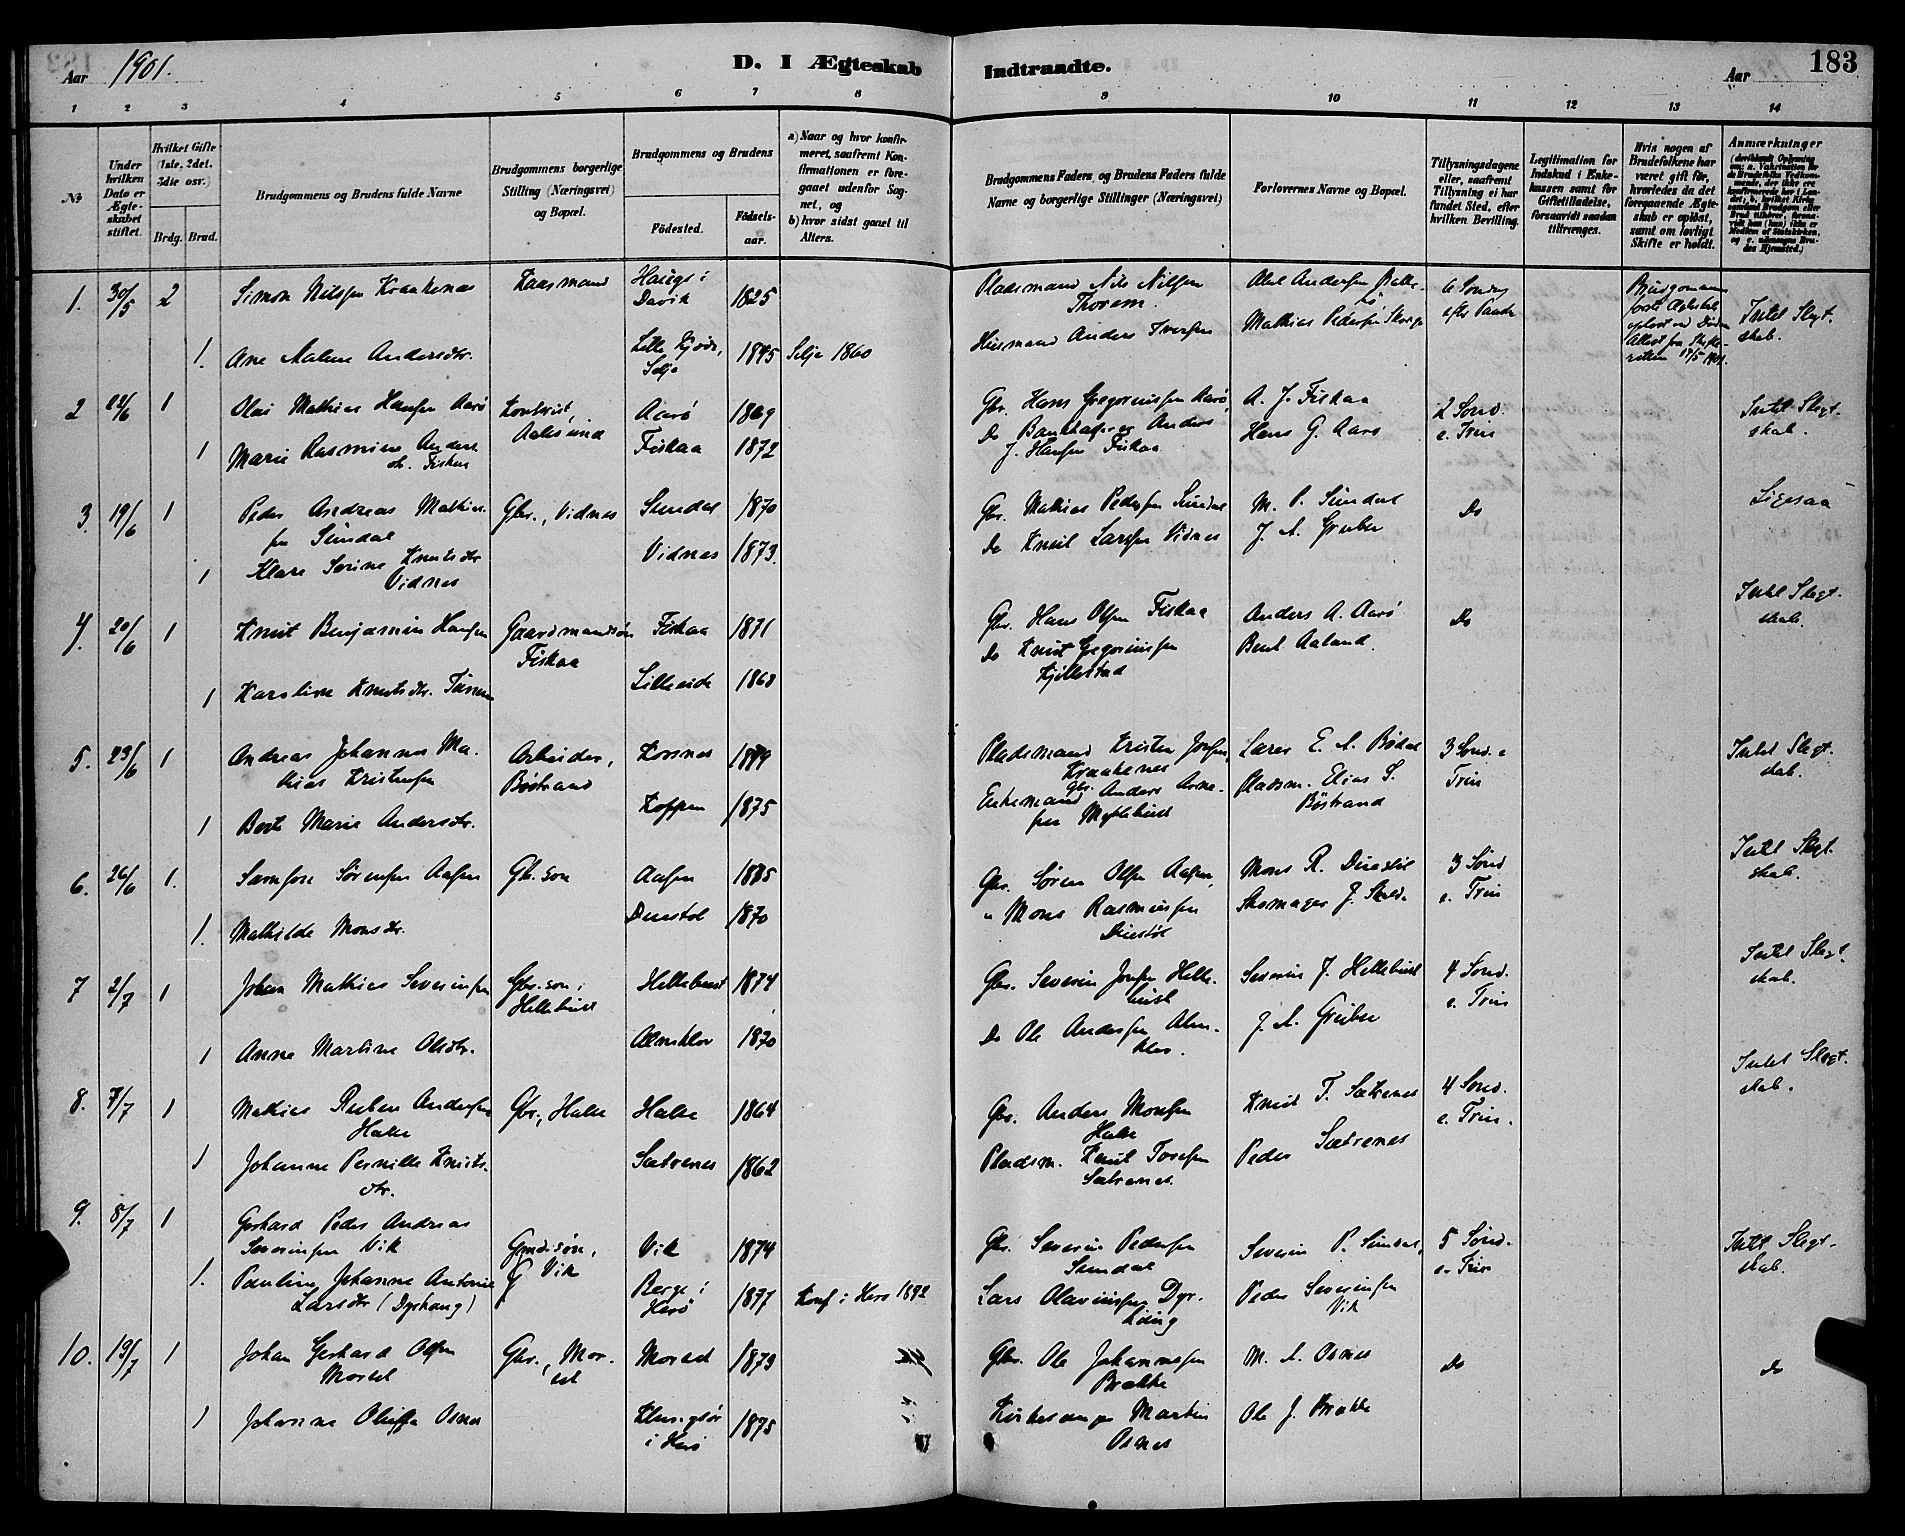 183
Aar 1901.
D. I Ægteskab Indtraadte.
Aar
1 2 3 4 5 6 7 8 9 10 11 12 13 14
No
Under hvilken Dato er Ægteskabet stiftet.
Hvilket Gifte (1ste, 2det, 3die osv.)
Brdg. Brud.
Brudgommens og Brudens fulde Navne
Brudgommens borgerlige Stilling (Næringsvei) og Bopæl.
Brudgommens og Brudens
Fødested.
Fødselsaar.
a) Naar og hvor konfirmeret, saafremt Konfirmationen er foregaaet udenfor Sognet, og
b) hvor sidst gaaet til Alters.
Brudgommens Faders og Brudens Faders fulde Navne og borgerlige Stillinger (Næringsvei)
Forlovernes Navne og Bopæl.
Tillysningsdagene eller, saafremt Tillysning ei har fundet Sted, efter hvilken Bevilling.
Legitimation for Indskud i Enkekassen samt for Giftetilladelse, forsaavidt saadan tiltrænges.
Hvis nogen af Brudefolkene har været gift før, hvorledes da det foregaaende Ægteskab er opløst, samt om lovligt Skifte er holdt.
Anmærkninger
1. 30/5 2 Simon Nilssen Kraakenes Kaarmand Hauge i Davik 1825 Pladsmand Nils Nilssen Thorem Abel Andersen 6 Søndag efter Paaske Intet Slegtskab.
1. Ane Malene Andersdtr. Lille Selje 1845 Selje 1860 Husmand Anders Iversen Mathias Pedersen
2 22/6 1 Olai Mathias Hansen Aarø Aalesund Aarø 1869 Gbr. Hans Gregoriussen Aarø, A. J. Fiskaa 2 Sønd. e. Trin Intet Slegtskab.
1 Marie Rasmine Andersdtr. Fiskaa Fiskaa 1872 Do Anders J. Hansen Fiskaa Hans G. Aarø
3. 19/6 1 Peder Andreas Mathiassen Sundal Gbr., Vidnes Sundal 1870 Gbr. Mathias Pedersen Sundal M. P. Sundal Do Ligesaa
1 Klara Serine Knutsdtr Vidnes Vidnes 1873. Do Knut Larssen Vidnes J. A. Gruber
4. 20/6 1 Knut Benjamin Hansen Gaardmandssøn Fiskaa Fiskaa 1871 Gbr. Hans Olsen Fiskaa Anders A. Aarø Do Intet Slegtskab.
1 Karoline Knutsdtr. Lilleeide 1868 Do Knut Gregoriussen Kjellestad Bent Aaland.
5. 23/6 1 Andreas Johannes Mathias Kristensen Arbeider, Bøstrand Korsnes 1879 Pladsmand Kristen Jonsen, Kraakenes Lars E. A. Bødal 3 Sønd. e Trin Intet Slegtskab.
1 Berte Marie Andersdtr. Koppen 1875 Enkemand Gbr. Anders Arnessen Myklebust Pladsm. Elias S. Bøstrand
6. 26/6 1. Samson Sørensen Aasen Gb.søn Aasen 1875 Gbr. Søren Olsen Aasen, Mons R. Duestøl 3 Sønd e. Trin Intet Slegtskab.
1. Mathilde Monsdtr. Duestøl 1870 " Mons Rasmussen Duestøl Skomager J.
7 2/7 1 Johan Mathias Severinsen Gbr.søn i Hellebust Hellebust 1874 Gbr. Severin Jonsen Hellebust Severin J. Hellebust 4 Sønd. e. Trin Intet Slegtskab.
1 Anne Martine Olsdtr. Almklov 1870 Do Ole Andersen Almklov. J. A. Gruber
8. 7/7 1 Mathias Ruben Andersen Hakse Gbr., Hakse Hakse 1864 Gbr. Anders Monsen Hakse Knut T. Sætrenes 4 Sønd. e. Trin. Intet Slegtskab.
1 Johanne Pernille Knutsdtr. Sætrenes 1862 Pladsm. Knut Tosesen Sætrenes. Peder Sætrenes
9. 8/7 1 Gerhard Peder Andreas Severinsen Vik Gmdssøn, Vik Vik 1874 Gbr. Severin Pedersen Sundal Severin P. Sundal, 5 Sønd. e. Trin Intet Slegtskab.
1. Pauline Johanne Antonie Larsdtr (Dyrhaug) Berge i Herø 1877 Konf. i Herø 1892 Lars Olavussen Dyrhaug Peder Severinsen Vik
10. 19/7 1 Johan Gerhard Olsen Mørset Gbr., Mørset Mørset 1873 Gbr. Ole Johannessen Brække M. A. Osnes Do Do
1 Johanne Oluffa Osnes i Herø 1875 Kirkesanger Martin Osnes Ole J. Brække